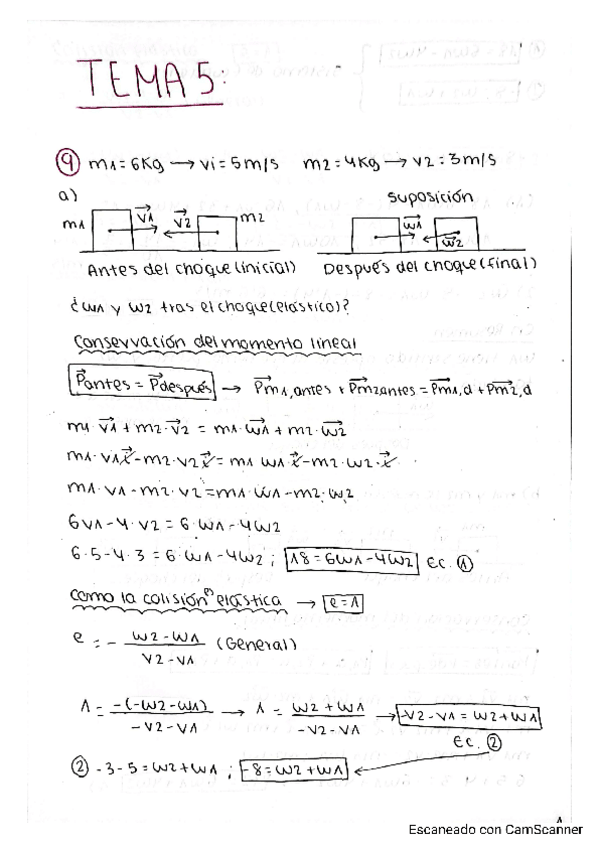 TEMA 5:
9 m1 = 6Kg → vi = 5m/s m2 = 4Kg → v2 = 3m/s
a) suposición
m1 v1 v2 m2 w1 w2
Antes del choque (inicial) Después del choque (final)
¿w1 y w2 tras el choque (elástico)?
Conservación del momento lineal
Pantes = Pdespués → Pm1,antes + Pm2antes = Pm1,d + Pm2,d
m1·v1 + m2·v2 = m1·w1 + m2·w2
m1·v1x - m2·v2x = m1 w1x - m2·w2·x
m1·v1 - m2·v2 = m1·w1 - m2·w2
6v1 - 4·v2 = 6·w1 - 4w2
6·5 - 4·3 = 6·w1 - 4w2 ; 18 = 6w1 - 4w2 Ec. 1
Como la colisión es elástica → e = 1
e = - w2 - w1 / v2 - v1 (General)
1 = -(-w2 - w1) / -v2 - v1 → 1 = w2 + w1 / -v2 - v1 → -v2 - v1 = w2 + w1
Ec. 2
2 -3 - 5 = w2 + w1 ; -8 = w2 + w1
1
Escaneado con CamScanner